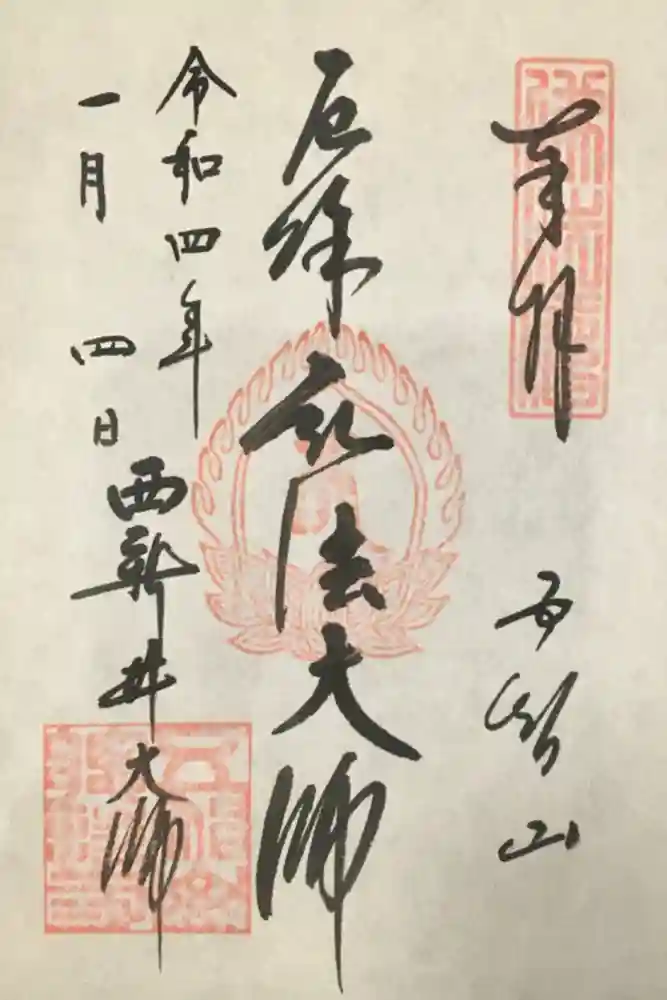 奉拝
五智山
厄除弘法大師
令和四年
一月 四日
西新井大師